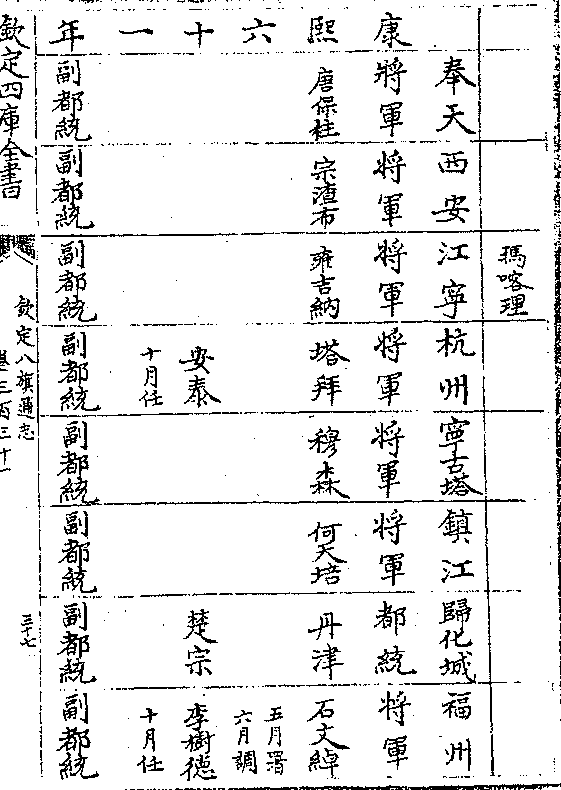 瑪喀理
康熙六十一年
奉天將軍 唐保柱 副都統
西安將軍 宗渣布 副都統
江寧將軍 雍吉納 副都統
杭州將軍 塔拜 安泰 十月任 副都統
寧古塔將軍 穆森 副都統
鎮江將軍 何天培 副都統
歸化城都統 丹津 楚宗 副都統
福州將軍 石文綽 五月署 六月調 李樹德 十月任 副都統
欽定四庫全書
欽定八旗通志
卷三百三十一
三十七